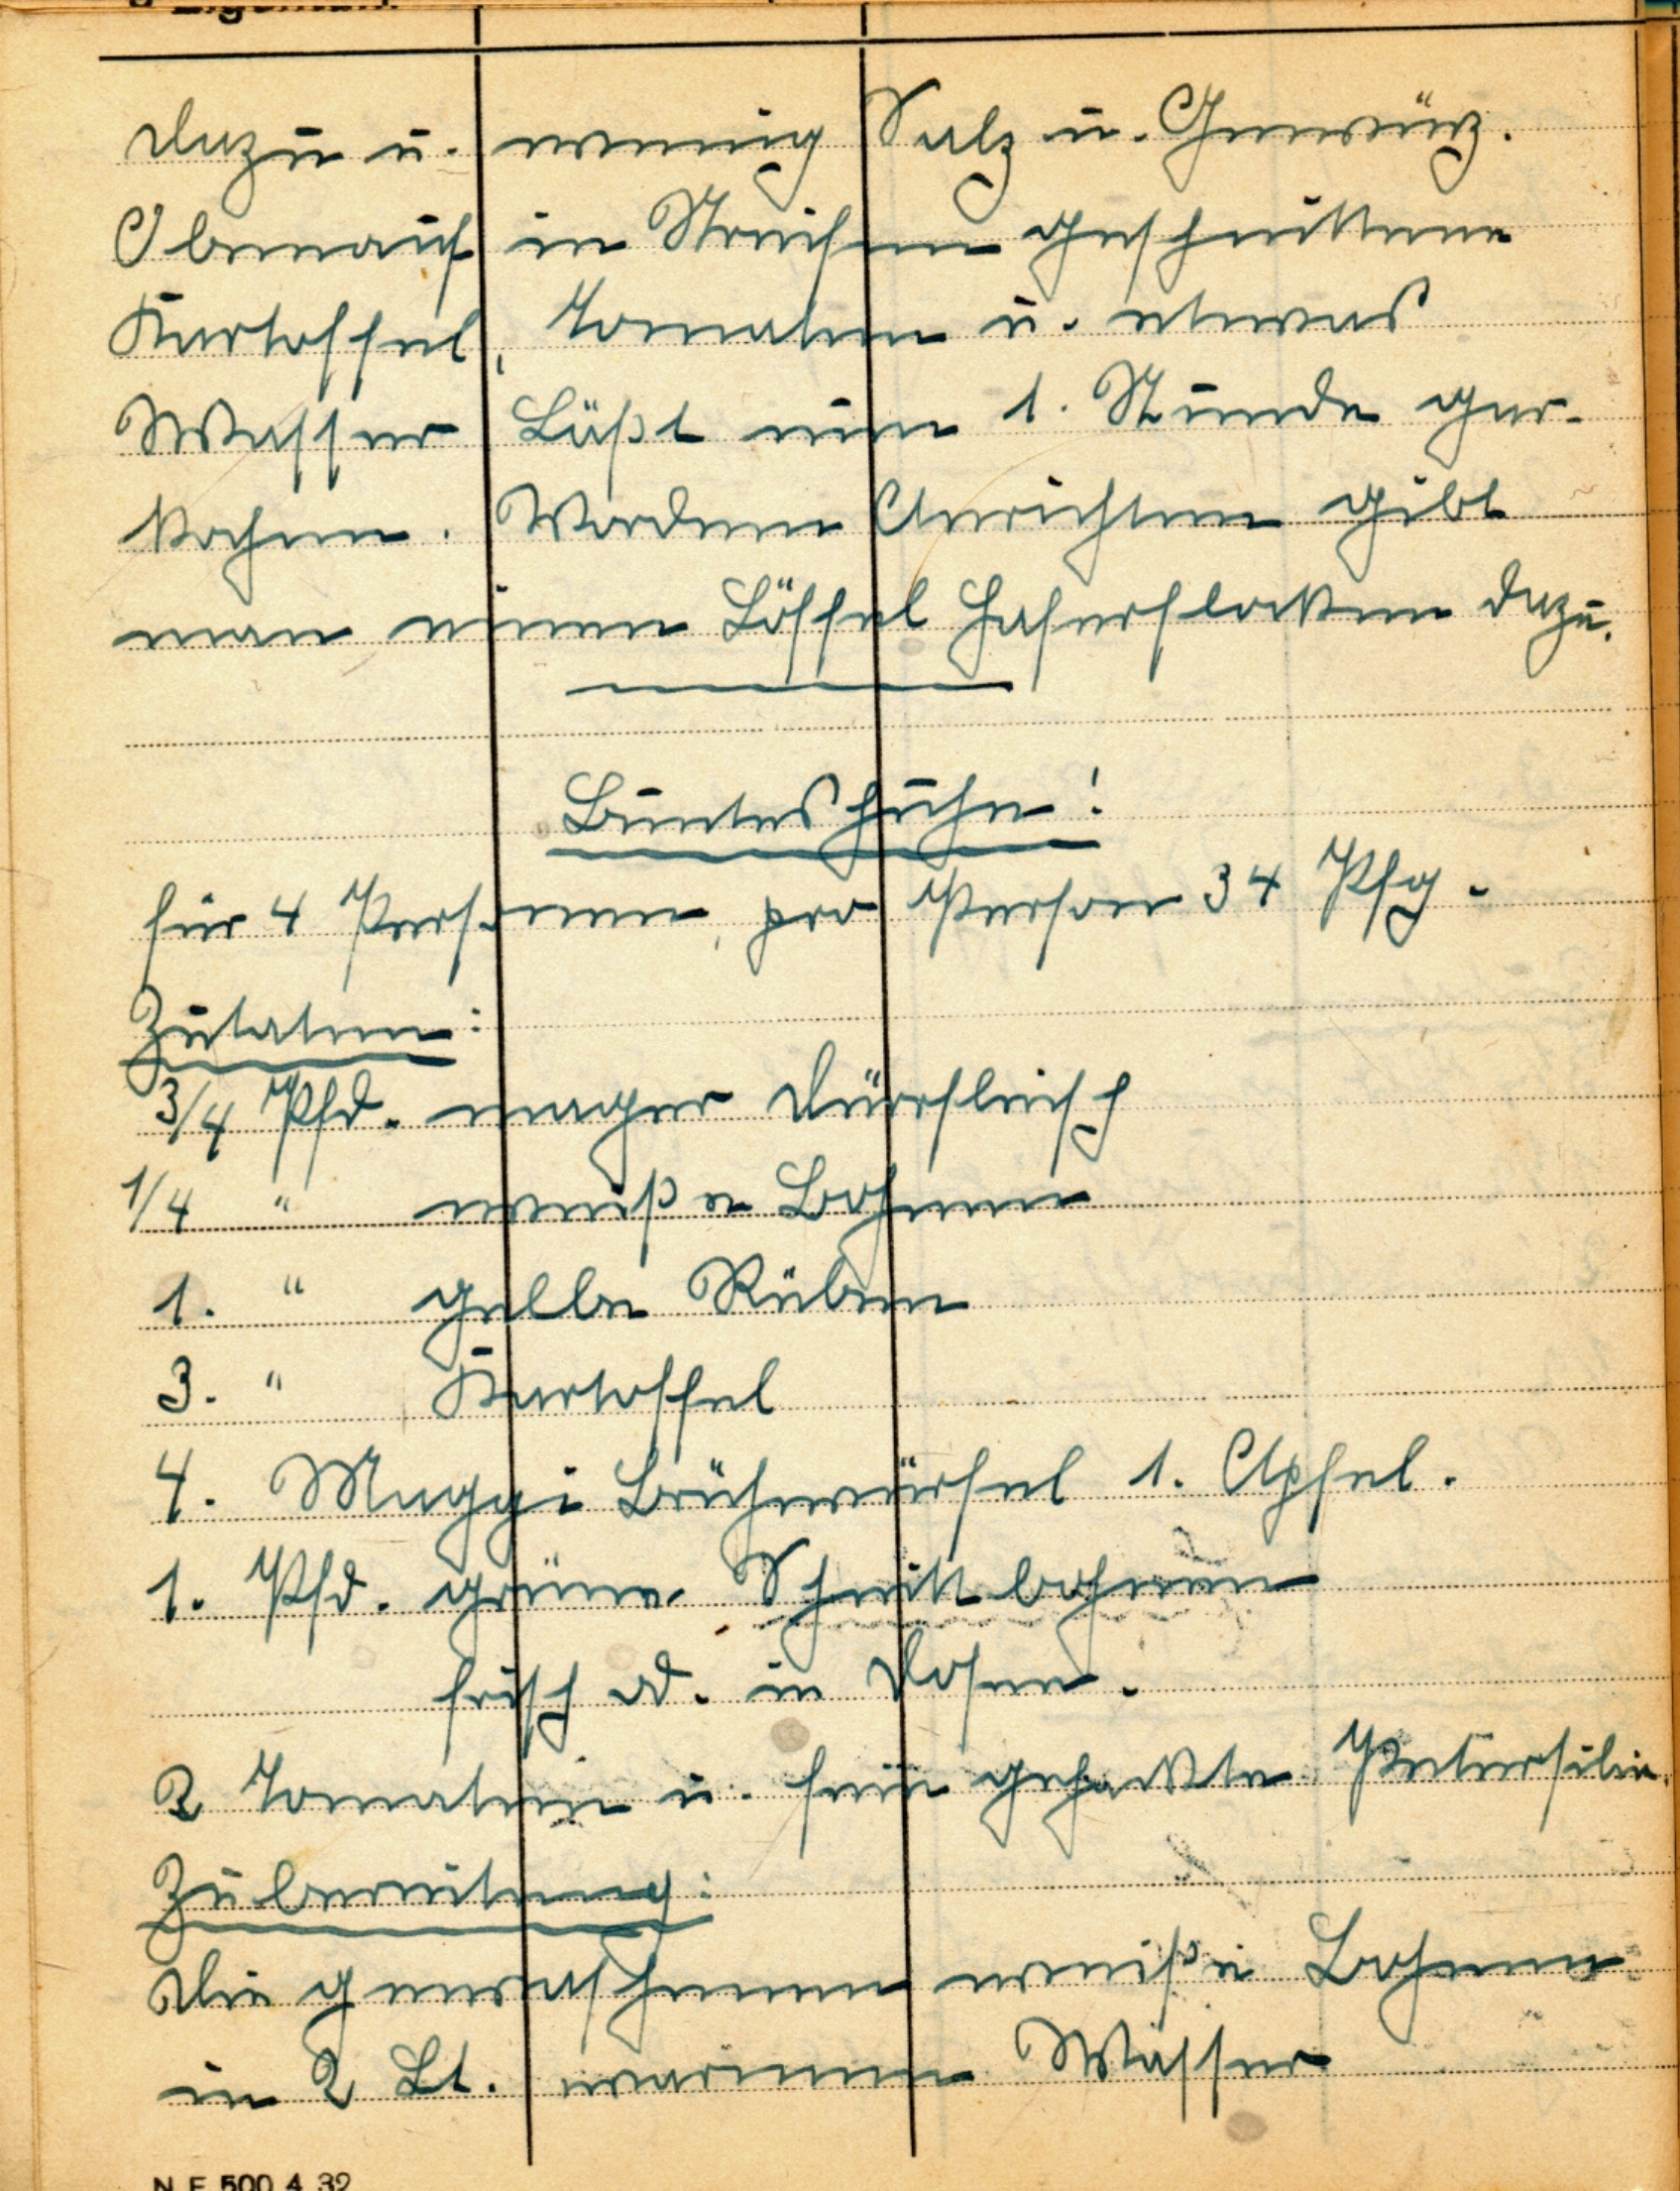 dazu u. wenig Salz u. Gewürz.
Obenauf in Streifen geschnittene
Kartoffel, Tomaten u. etwas
Wasser. Läßt nun 1. Stunde gar-
kochen. Vordem Anrichten gibt
man einen Löffel Haferflocken dazu.
Buntes Huhn!
für 4 Personen, pro Person 34 Pfg.
Zutaten:
3/4 Pfd. mager Dürrfleisch
1/4 " weiße Bohnen
1. " gelbe Rüben
3. " Kartoffel
4. Maggi Brühwürfel 1. Apfel.
1. Pfd. grüne Schnittbohnen
frisch od. in Dosen.
2 Tomaten u. fein gehackte Petersilie.
Zubereitung:
Die gewaschenen weiße Bohnen
in 2 Lt. warmen Wasser
N E 500 4 32